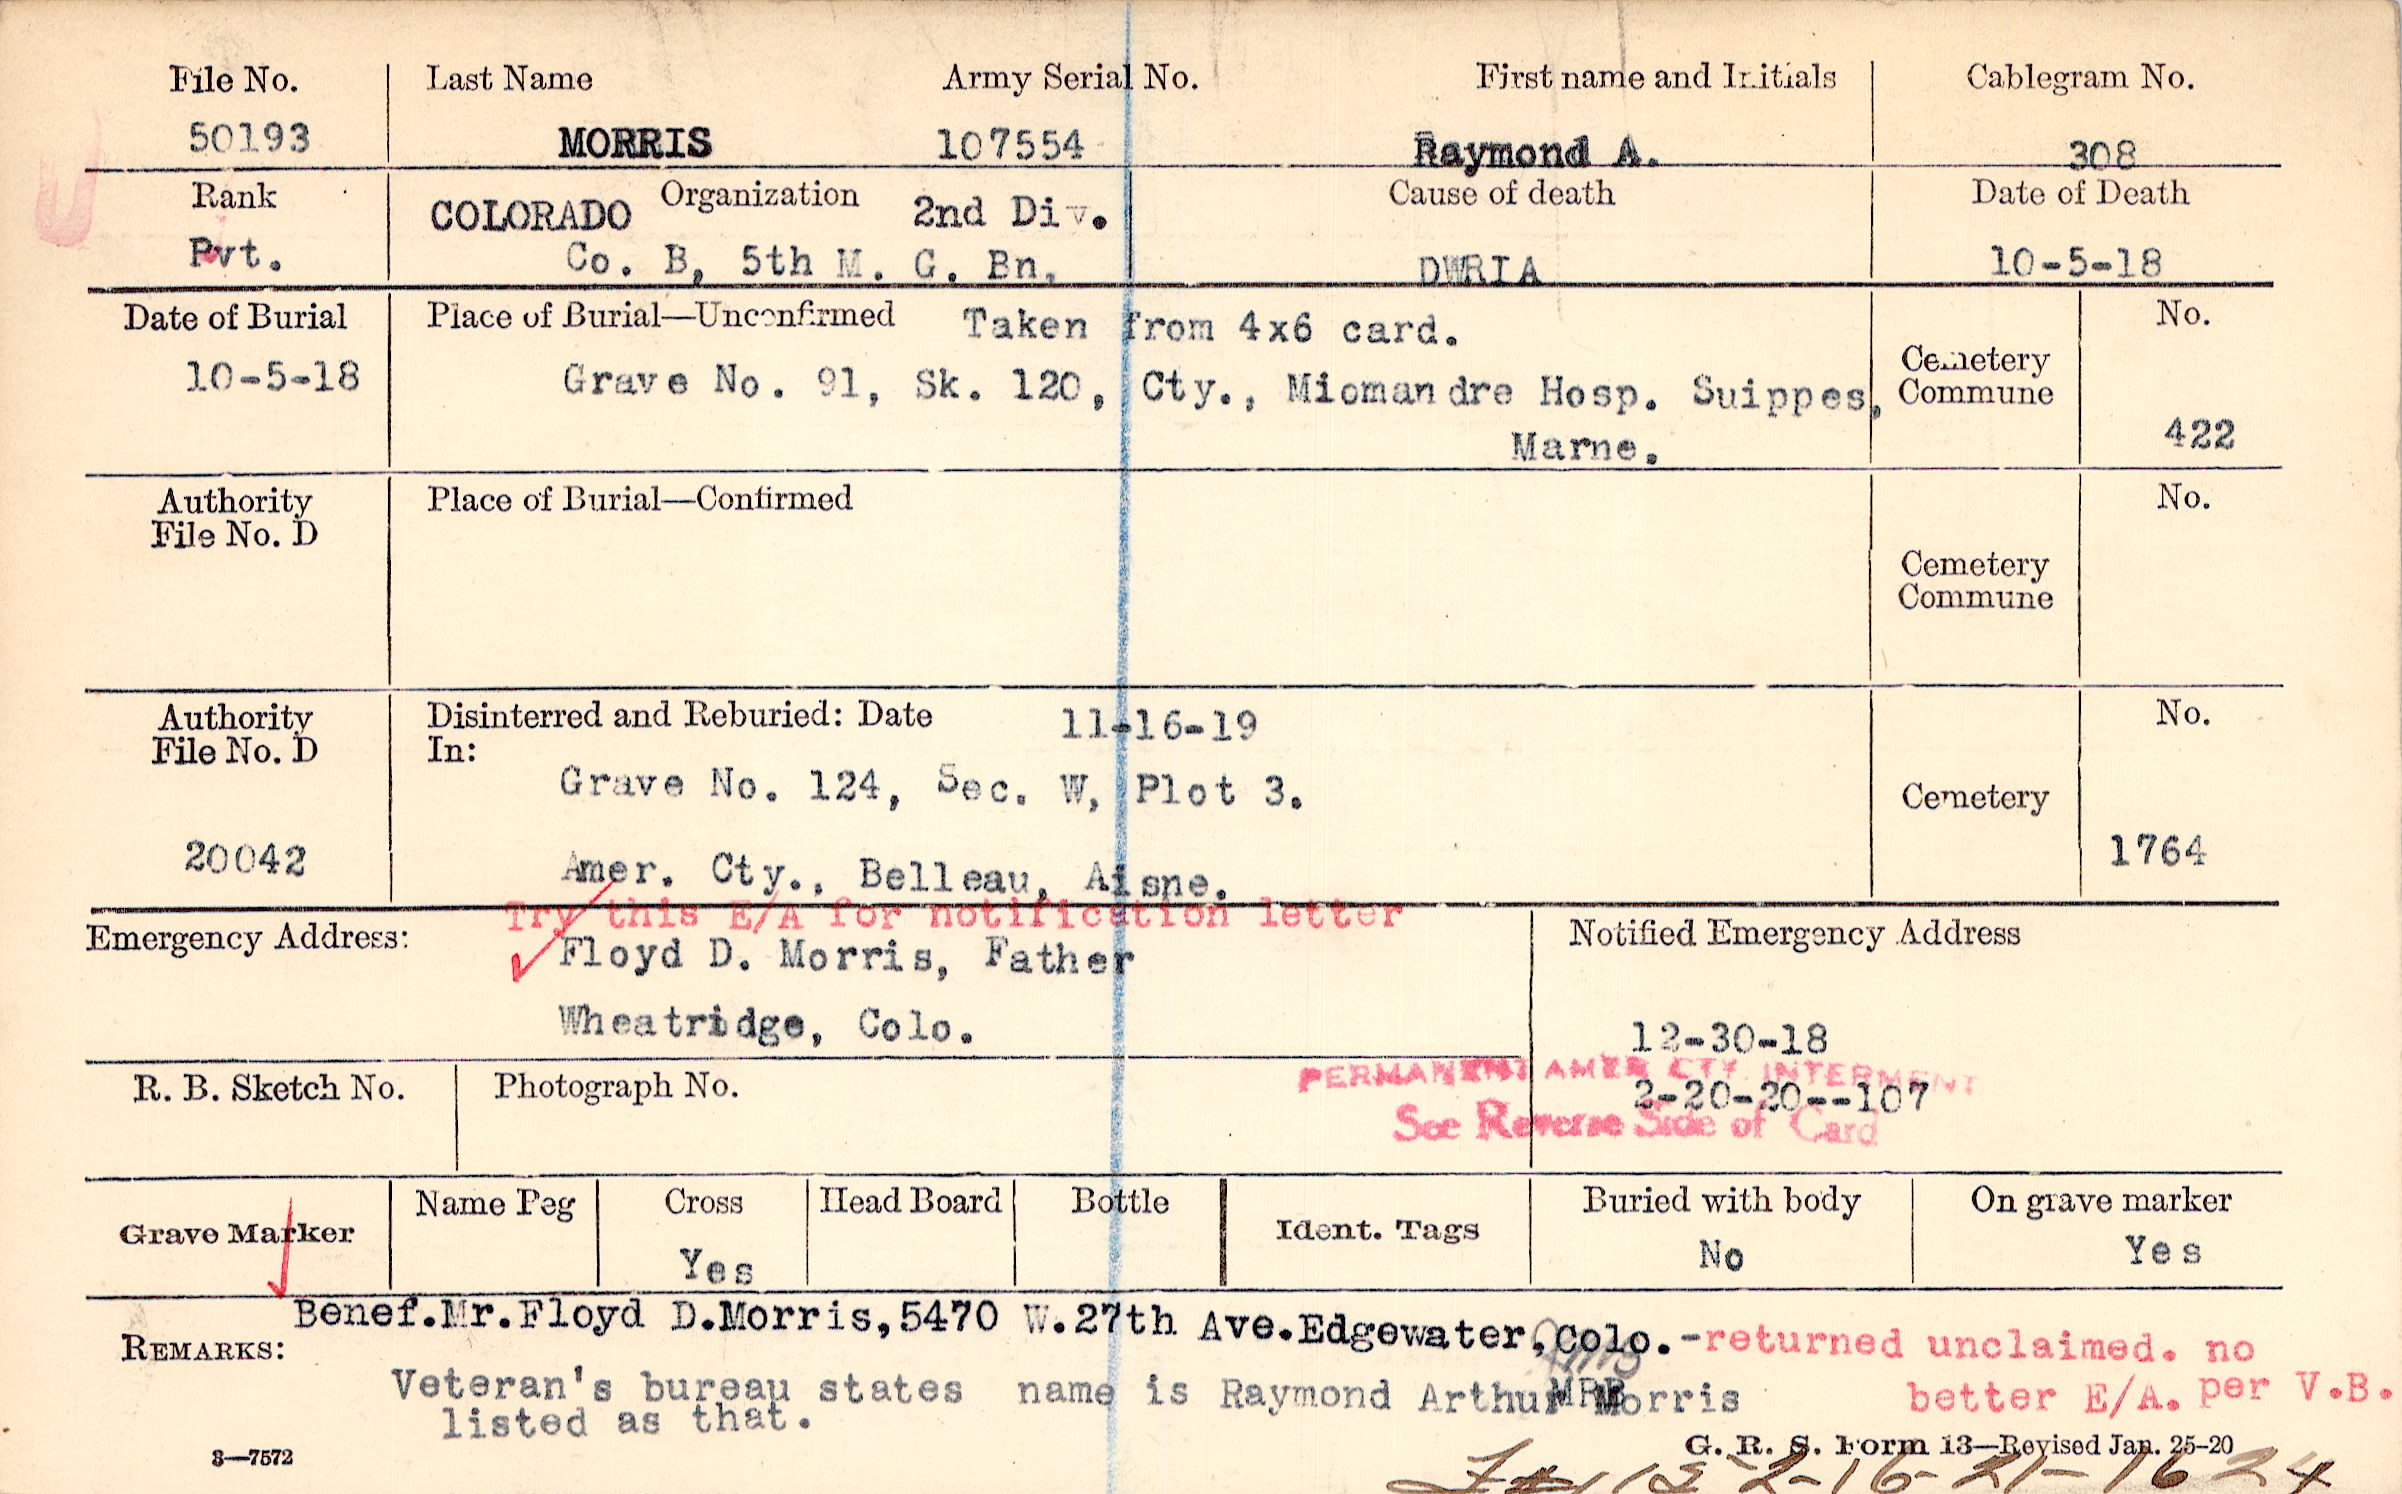 File No. Last Name Army Serial No. First name and Initials Cablegram No.
50193 MORRIS 107554 Raymond A. 308
Rank COLORADO Organization 2nd Div. Cause of death Date of Death
Pvt. Co. B, 5th M. G. Bn. DWRIA 10-5-18
Date of Burial Place of Burial—Unconfirmed Taken from 4x6 card. No.
10-5-18 Grave No. 91, Sk. 120, Cty., Miomandre Hosp. Suippes, Cemetery Commune
Marne. 422
Authority File No. D Place of Burial—Confirmed No.
Cemetery Commune
Authority File No. D Disinterred and Reburied: Date 11-16-19 No.
In:
Grave No. 124, Sec. W, Plot 3. Cemetery
20042 Amer. Cty., Belleau, Aisne. 1764
Try this E/A for notification letter
Emergency Address: Floyd D. Morris, Father Notified Emergency Address
Wheatridge, Colo. 12-30-18
PERMANENT AMER CTY INTERMENT
R. B. Sketch No. Photograph No. 2-20-20--107
See Reverse Side of Card
Grave Marker Name Peg Cross Head Board Bottle Ident. Tags Buried with body On grave marker
Yes No Yes
Benef.Mr.Floyd D.Morris,5470 W.27th Ave.Edgewater,Colo.-returned unclaimed. no
REMARKS:
Veteran's bureau states name is Raymond Arthur Morris better E/A. per V.B.
listed as that.
3—7572 G. R. S. Form 13—Revised Jan. 25-20